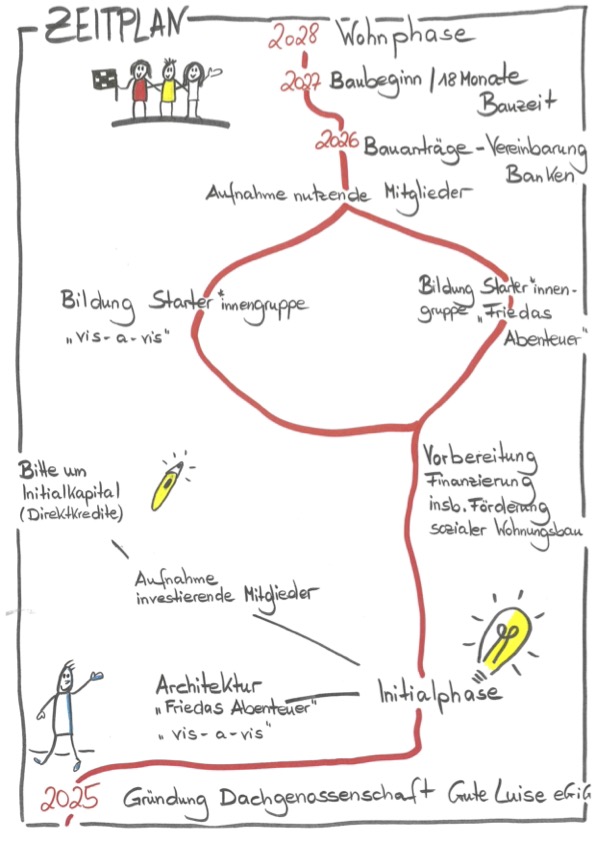 ZEITPLAN
2028 Wohnphase
2027 Baubeginn / 18 Monate
Bauzeit
2026 Bauanträge - Vereinbarung
Banken
Aufnahme nutzende Mitglieder
Bildung Starter*innengruppe
„vis-a-vis"
Bildung Starter*innen-
gruppe „Friedas
Abenteuer"
Vorbereitung
Finanzierung
insb. Förderung
sozialer Wohnungsbau
Bitte um
Initialkapital
(Direktkredite)
Aufnahme
investierende Mitglieder
Initialphase
Architektur
„Friedas Abenteuer"
„vis-a-vis"
2025 Gründung Dachgenossenschaft Gute Luise eGiG